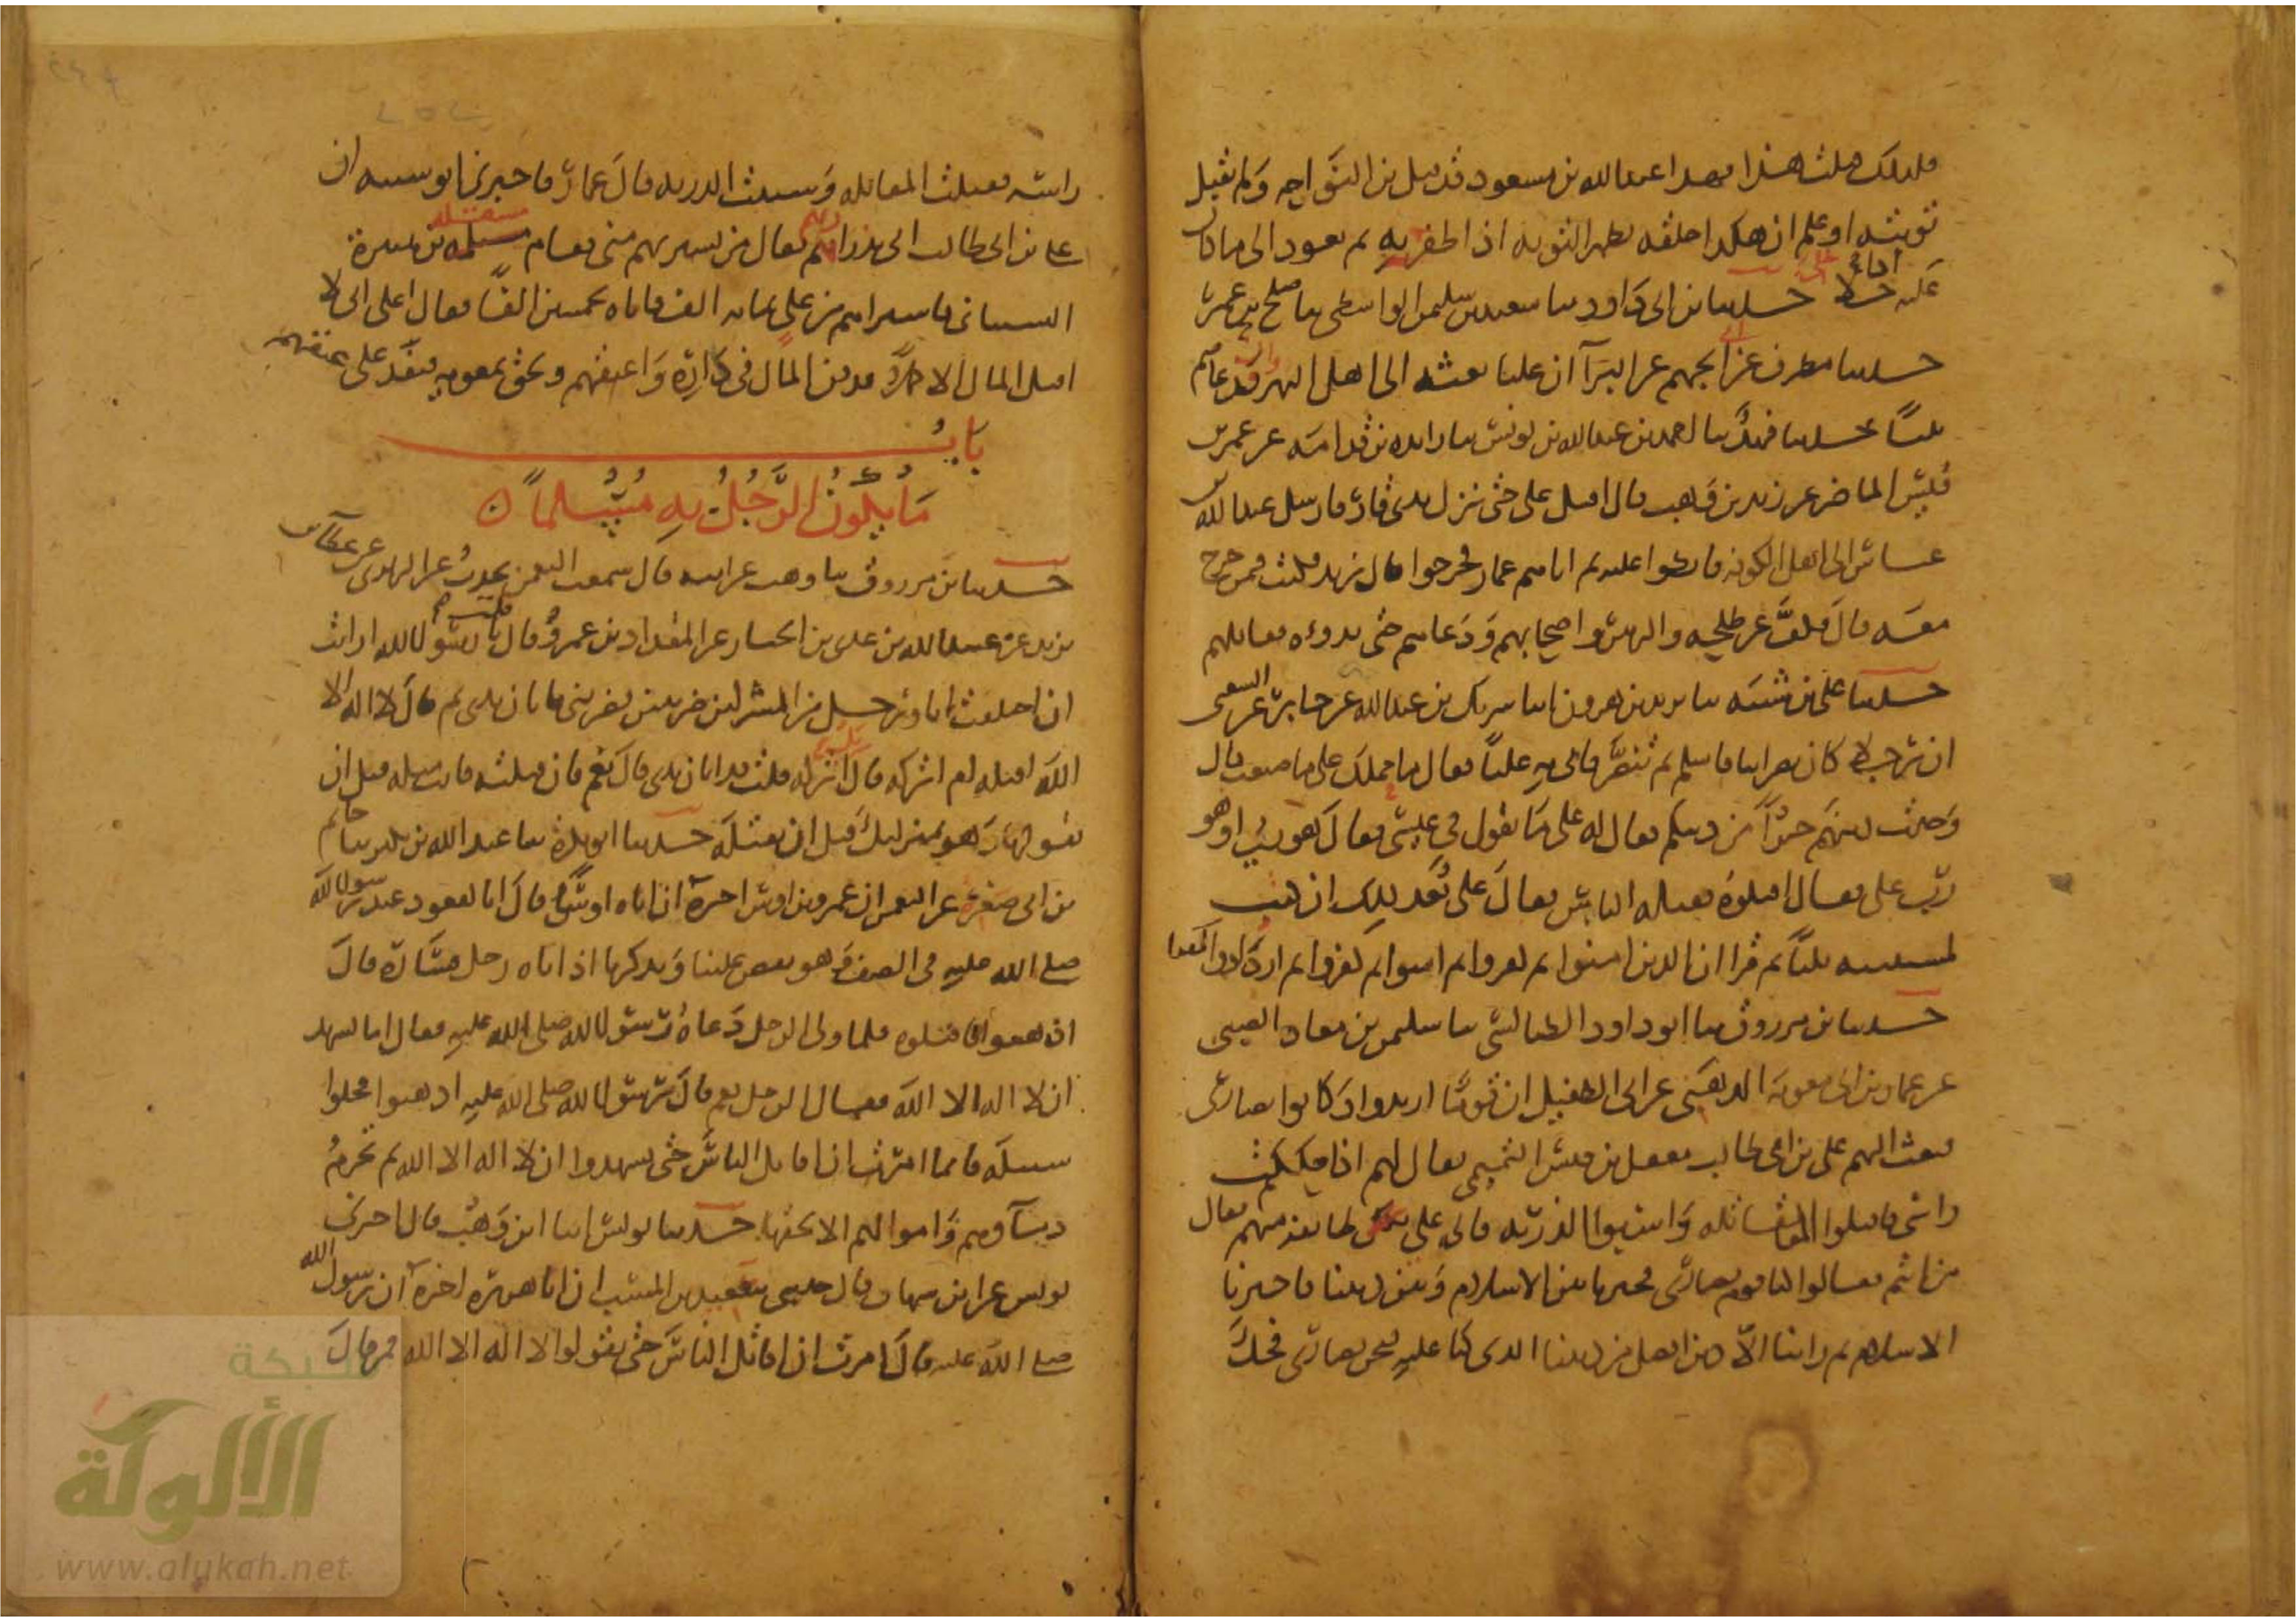 فلذلك قلت هذا فهذا عبد الله بن مسعود قد قبل بن النواحه ولم يقبل
توبته اذ علم ان هكذا خلقه يظهر التوبه اذا ظفر به ثم يعود الى ما كان
عليه حدثنا بن ابى داود ثنا سعيد بن سليمن الواسطى ثنا صلح بن عمر ثنا
حدثنا مطرف عن ابى الجهم عن البرآ ان عليا بعثه الى اهل النهر فدعاهم
ثلثا حدثنا فهد ثنا احمد بن عبد الله بن يونس ثنا زايده بن قدامه عن عمر بن
قيس الماصر عن زيد بن وهب قال اقبل على حتى نزل بذى قار فارسل عبد الله بن
عباس الى اهل الكوفه فابطوا عليه ثم اتاهم عمار فخرجوا قال زيد فكنت فيمن خرج
معه قال فكف عن طلحه والزبير واصحابهم ودعاهم حتى بدوه فقاتلهم
حدثنا على بن شيبه ثنا يزيد بن هرون انا شريك بن عبد الله عن جابر عن الشعبى
ان رجلا كان نصرانيا فاسلم ثم تنصر فاتى به عليا فقال ما حملك على ما صنعت قال
وجدت دينهم خيرا من دينكم فقال له على ما تقول فى عيسى فقال هو ربى او هو
رب على فقال اقتلوه فقتله الناس فقال على بعد ذلك ان كنت
لمستتيبه ثلثا ثم قرا ان الذين امنوا ثم كفروا ثم امنوا ثم كفروا ثم ازدادوا كفرا
حدثنا بن مرزوق ثنا ابو داود الطيالسى ثنا سليمن بن معاذ الضبى
عن عمار بن ابى معويه الدهنى عن ابى الطفيل ان قوما ارتدوا وكانوا نصارى
فبعث اليهم على بن ابى طالب معقل بن قيس التميمى فقال لهم اذا حككت
راسى فاقتلوا المقاتله واسبوا الذريه فاتى على طايفه منهم فقال
من انتم فقالوا كنا قوم نصارى فخيرنا بين الاسلام وبين ديننا فاخترنا
الاسلام ثم راينا الا دين افضل من ديننا الذى كنا عليه فنحن نصارى فحك
راسه فقتلت المقاتله وسبيت الذريه قال عمار فاخبرنى ابو شيبه ان
على بن ابى طالب اتى بذراريهم فقال من يشتريهم منى فقام مسقله بن هبيرة
الشيبانى فاشتراهم من على بمايه الف فاتاه بخمسين الفا فقال على انى لا
اقبل المال الا كاملا فدفن المال فى داره واعتقهم ولحق بمعويه فنفذ على عتقهم
باب
ما يكون الرجل به مسلما
حدثنا بن مرزوق ثنا وهب عن ابيه قال سمعت النعمن يحدث عن الزهرى عن عطا بن
يزيد عن عبيد الله بن عدى بن الخيار عن المقداد بن عمرو قال قلت يا رسول الله ارايت
ان اختلفت انا ورجل من المشركين ضربتين فضربنى فابان يدى ثم قال لا اله الا
الله اقتله ام اتركه قال اتركه قلت قد ابان يدى قال نعم فان قتلته فانت مثله قبل ان
يقولها وهو بمنزلتك قبل ان تقتله حدثنا ابو بكرة ثنا عبد الله بن بكر ثنا حاتم
بن ابى صغيرة عن النعمن ان عمرو بن اوس اخبره ان اباه اوسا قال انا لقعود عند رسول الله
صلى الله عليه فى الصفه وهو يقص علينا ويذكرنا اذ اتاه رجل فساره قال
اذهبوا فاقتلوه فلما ولى الرجل دعاه رسول الله صلى الله عليه فقال اما تشهد
ان لا اله الا الله فقال الرجل نعم قال رسول الله صلى الله عليه اذهبوا فخلوا
سبيله فانما امرت ان اقاتل الناس حتى يشهدوا ان لا اله الا الله ثم تحرم
دماوهم واموالهم الا بحقها حدثنا يونس انا ابن وهب قال اخبرنى
يونس عن ابن شهاب قال حدثنى سعيد بن المسيب ان ابا هريرة اخبره ان رسول الله
صلى الله عليه قال امرت ان اقاتل الناس حتى يقولوا لا اله الا الله فمن قال
شبكة
الألوكة
www.alukah.net